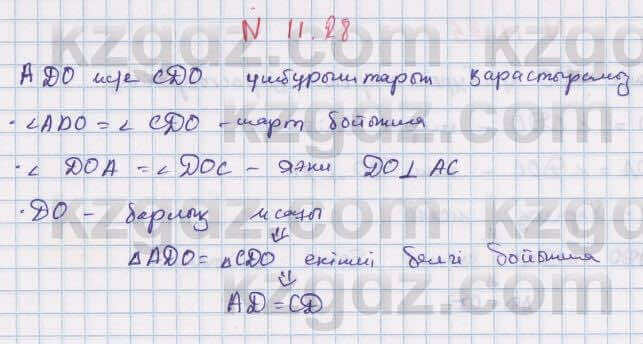 № 11.28
ADO және CDO үшбұрыштарын қарастырамыз
· ∠ADO = ∠ CDO – шарт бойынша
· ∠ DOA = ∠ DOC – яғни DO⊥AC
· DO – барлық
⇓
△ADO = △CDO екінші белгі бойынша
⇓
AD = CD
kzgdz.com